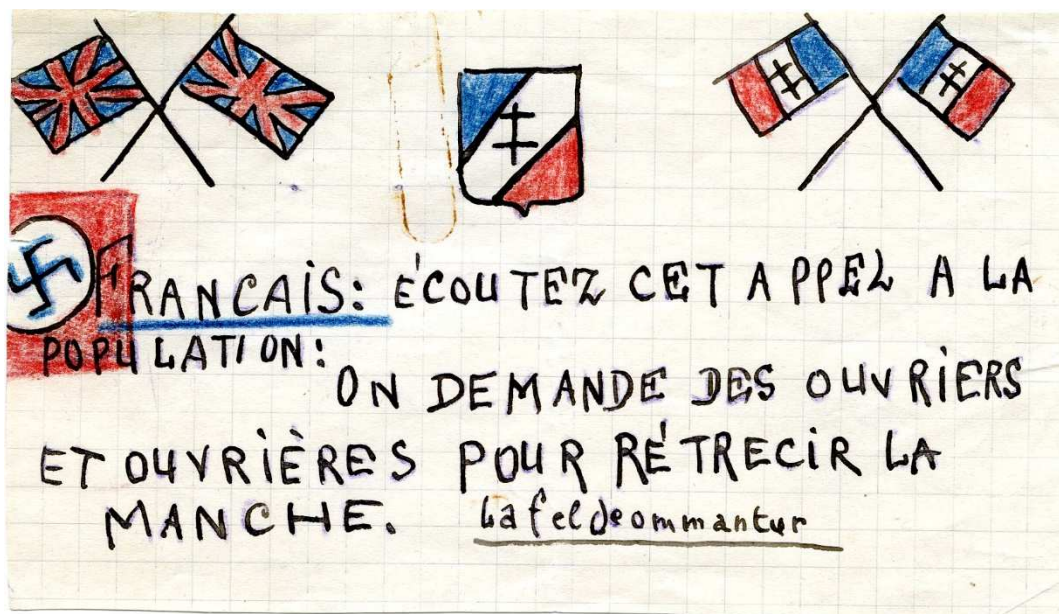 FRANCAIS: ÉCOUTEZ CET APPEL A LA
POPULATION:
ON DEMANDE DES OUVRIERS
ET OUVRIÈRES POUR RÉTRECIR LA
MANCHE. La feldeommantur